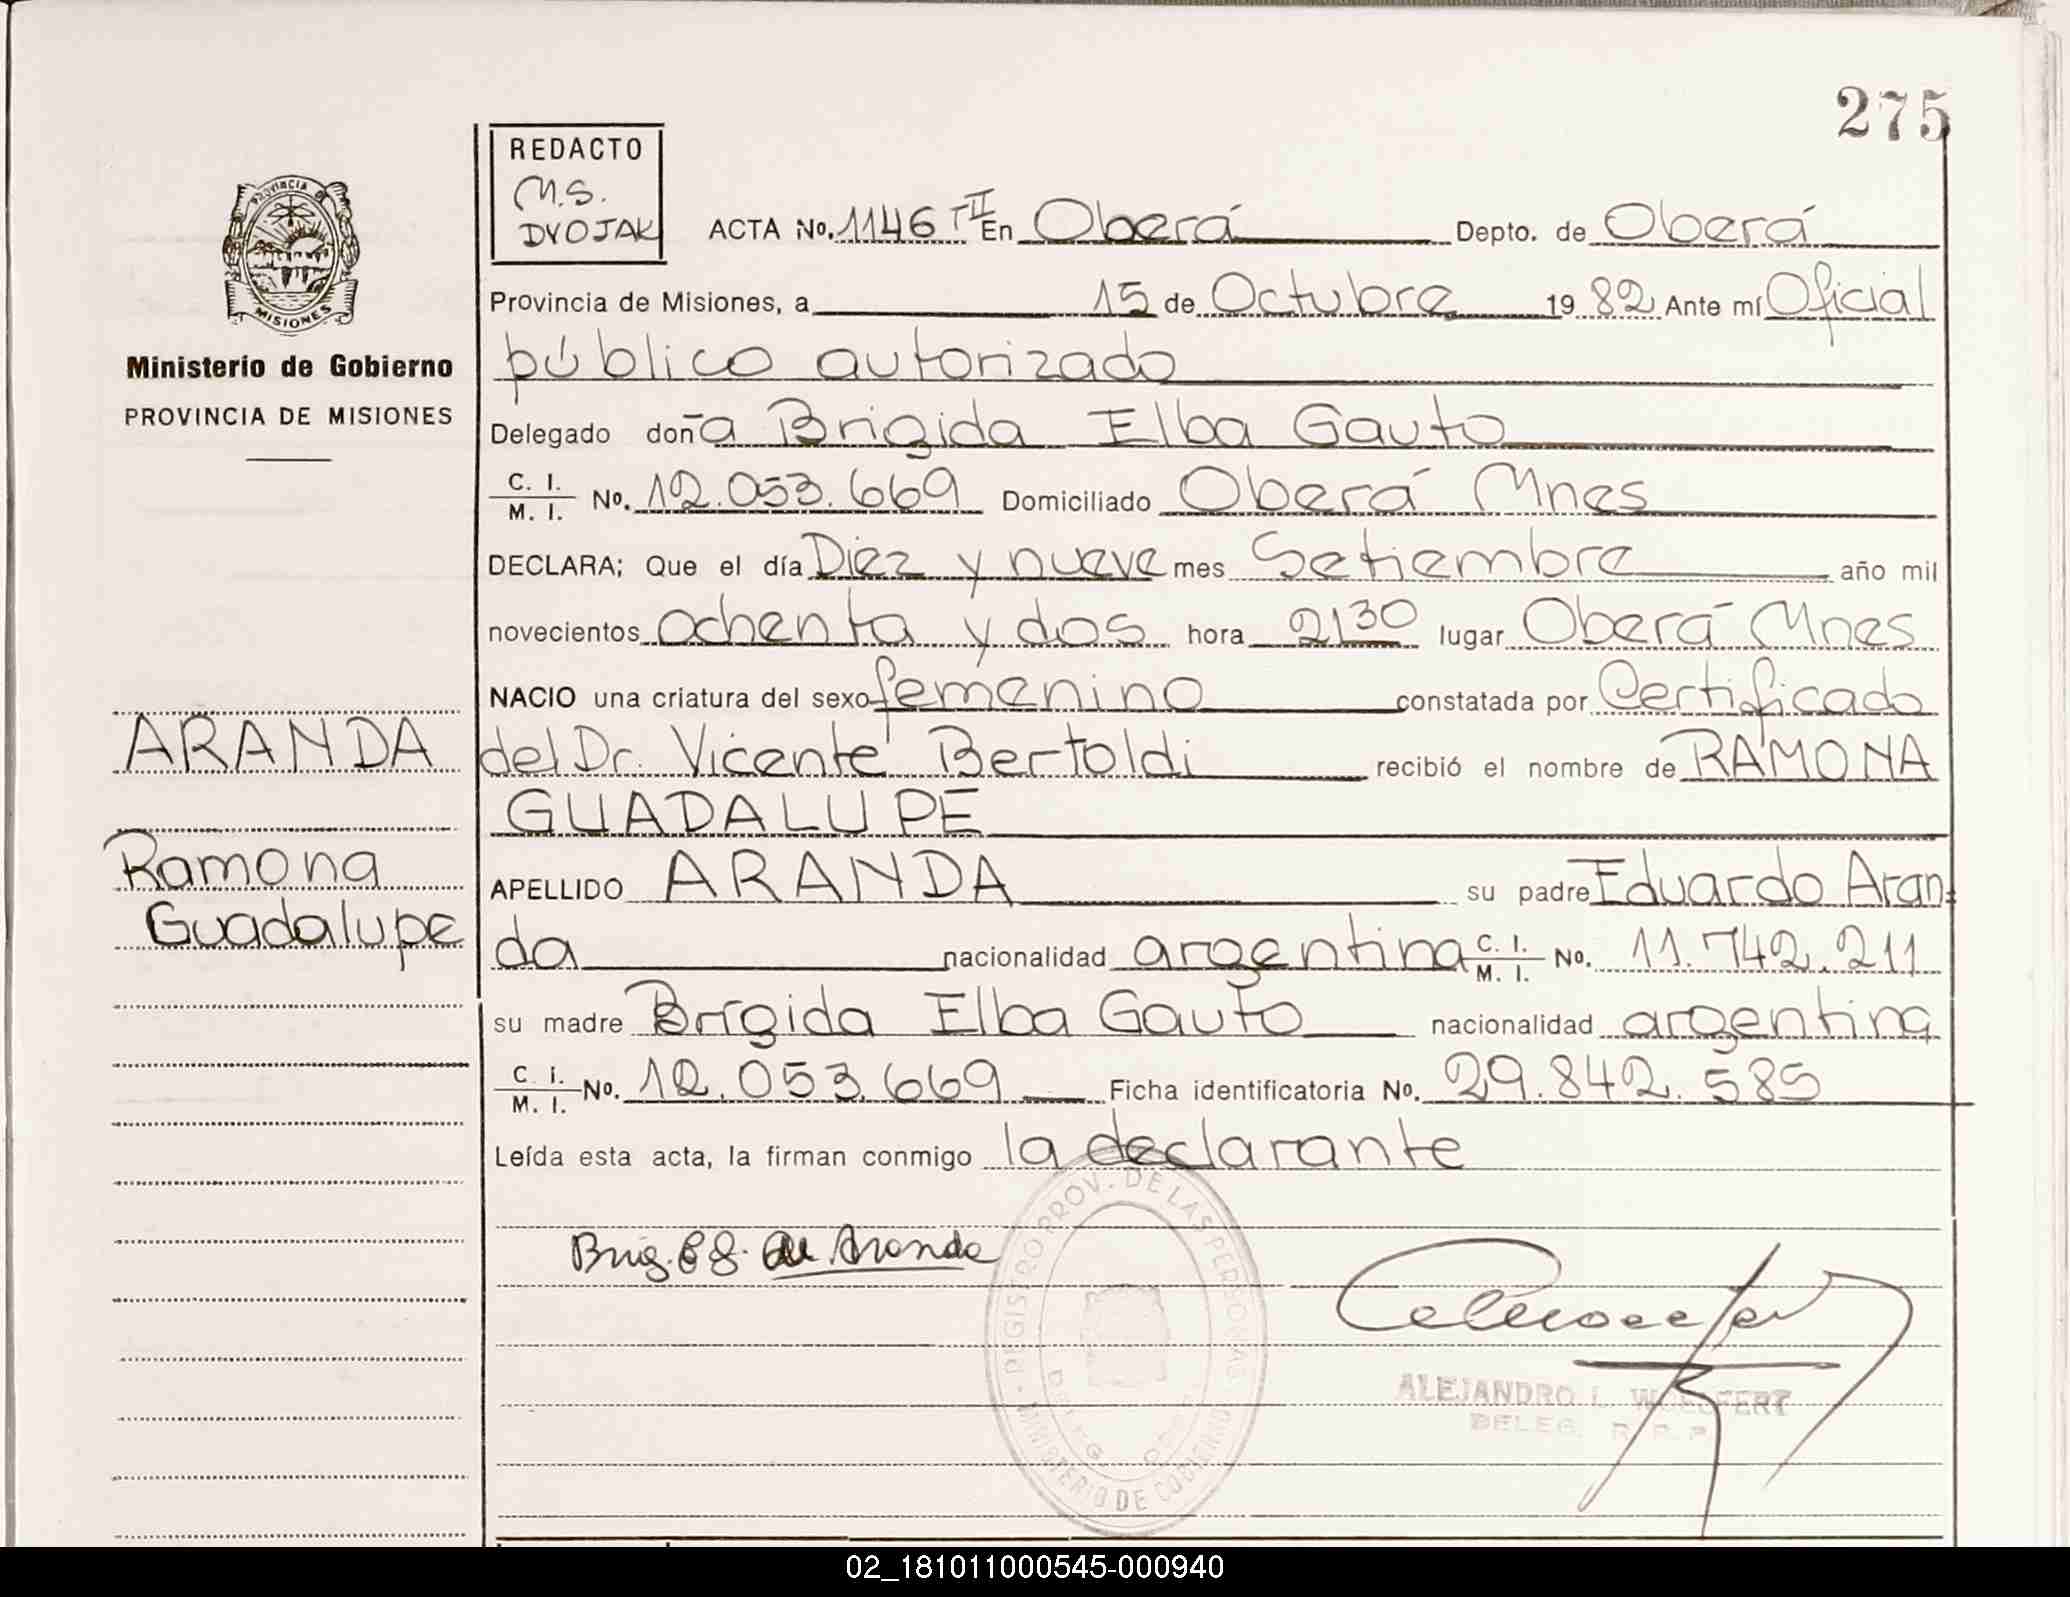 275
REDACTO
M.S.
DVOJAK
ACTA No. 1146 TII En Oberá Depto. de Oberá
Provincia de Misiones, a 15 de Octubre 19 82 Ante mí Oficial
público autorizado
Delegado doña Brigida Elba Gauto
C. I. / M. I. No. 12.053.669 Domiciliado Oberá Mnes
DECLARA; Que el día Diez y nueve mes Setiembre año mil
novecientos ochenta y dos hora 2130 lugar Oberá Mnes
NACIO una criatura del sexo femenino constatada por Certificado
del Dr. Vicente Bertoldi recibió el nombre de RAMONA
GUADALUPE
APELLIDO ARANDA su padre Eduardo Aran=
da nacionalidad argentina C. I. / M. I. No. 11.742.211
su madre Brígida Elba Gauto nacionalidad argentina
C. I. / M. I. No. 12.053.669 Ficha identificatoria No. 29.842.585
Leída esta acta, la firman conmigo la declarante
Brig. E G. de Aranda
ALEJANDRO L. WOESFERT
DELEG. R. P. P.
REGISTRO PROV. DE LAS PERSONAS
MINISTERIO DE GOBIERNO
PROVINCIA DE
MISIONES
Ministerio de Gobierno
PROVINCIA DE MISIONES
ARANDA
Ramona
Guadalupe
02_181011000545-000940